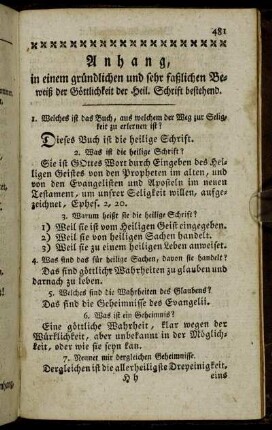 481
Anhang,
in einem gründlichen und sehr faßlichen Be-
weiß der Göttlichkeit der Heil. Schrift bestehend.
1. Welches ist das Buch, aus welchem der Weg zur Selig-
keit zu erlernen ist?
Dieses Buch ist die heilige Schrift.
2. Was ist die heilige Schrift?
Sie ist GOttes Wort durch Eingeben des Hei-
ligen Geistes von den Propheten im alten, und
von den Evangelisten und Aposteln im neuen
Testament, um unsrer Seligkeit willen, aufge-
zeichnet, Ephes. 2, 20.
3. Warum heißt sie die heilige Schrift?
1) Weil sie ist vom Heiligen Geist eingegeben.
2) Weil sie von heiligen Sachen handelt.
3) Weil sie zu einem heiligen Leben anweiset.
4. Was sind das für heilige Sachen, davon sie handelt?
Das sind göttliche Wahrheiten zu glauben und
darnach zu leben.
5. Welches sind die Wahrheiten des Glaubens?
Das sind die Geheimnisse des Evangelii.
6. Was ist ein Geheimnis?
Eine göttliche Wahrheit, klar wegen der
Würklichkeit, aber unbekannt in der Möglich-
keit, oder wie sie seyn kan.
7. Nennet mir dergleichen Geheimnisse.
Dergleichen ist die allerheiligste Dreyeinigkeit,
H h
eins